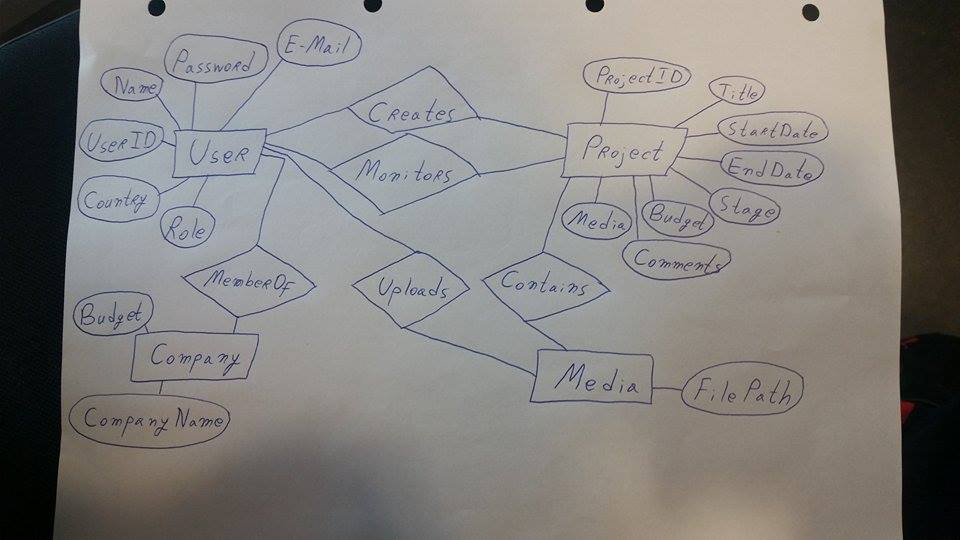 E-Mail
Password
Name
UserID
User
Country
Role
Creates
Monitors
ProjectID
Title
StartDate
Project
EndDate
Stage
Media
Budget
Comments
MemberOf
Uploads
Contains
Budget
Company
CompanyName
Media
FilePath